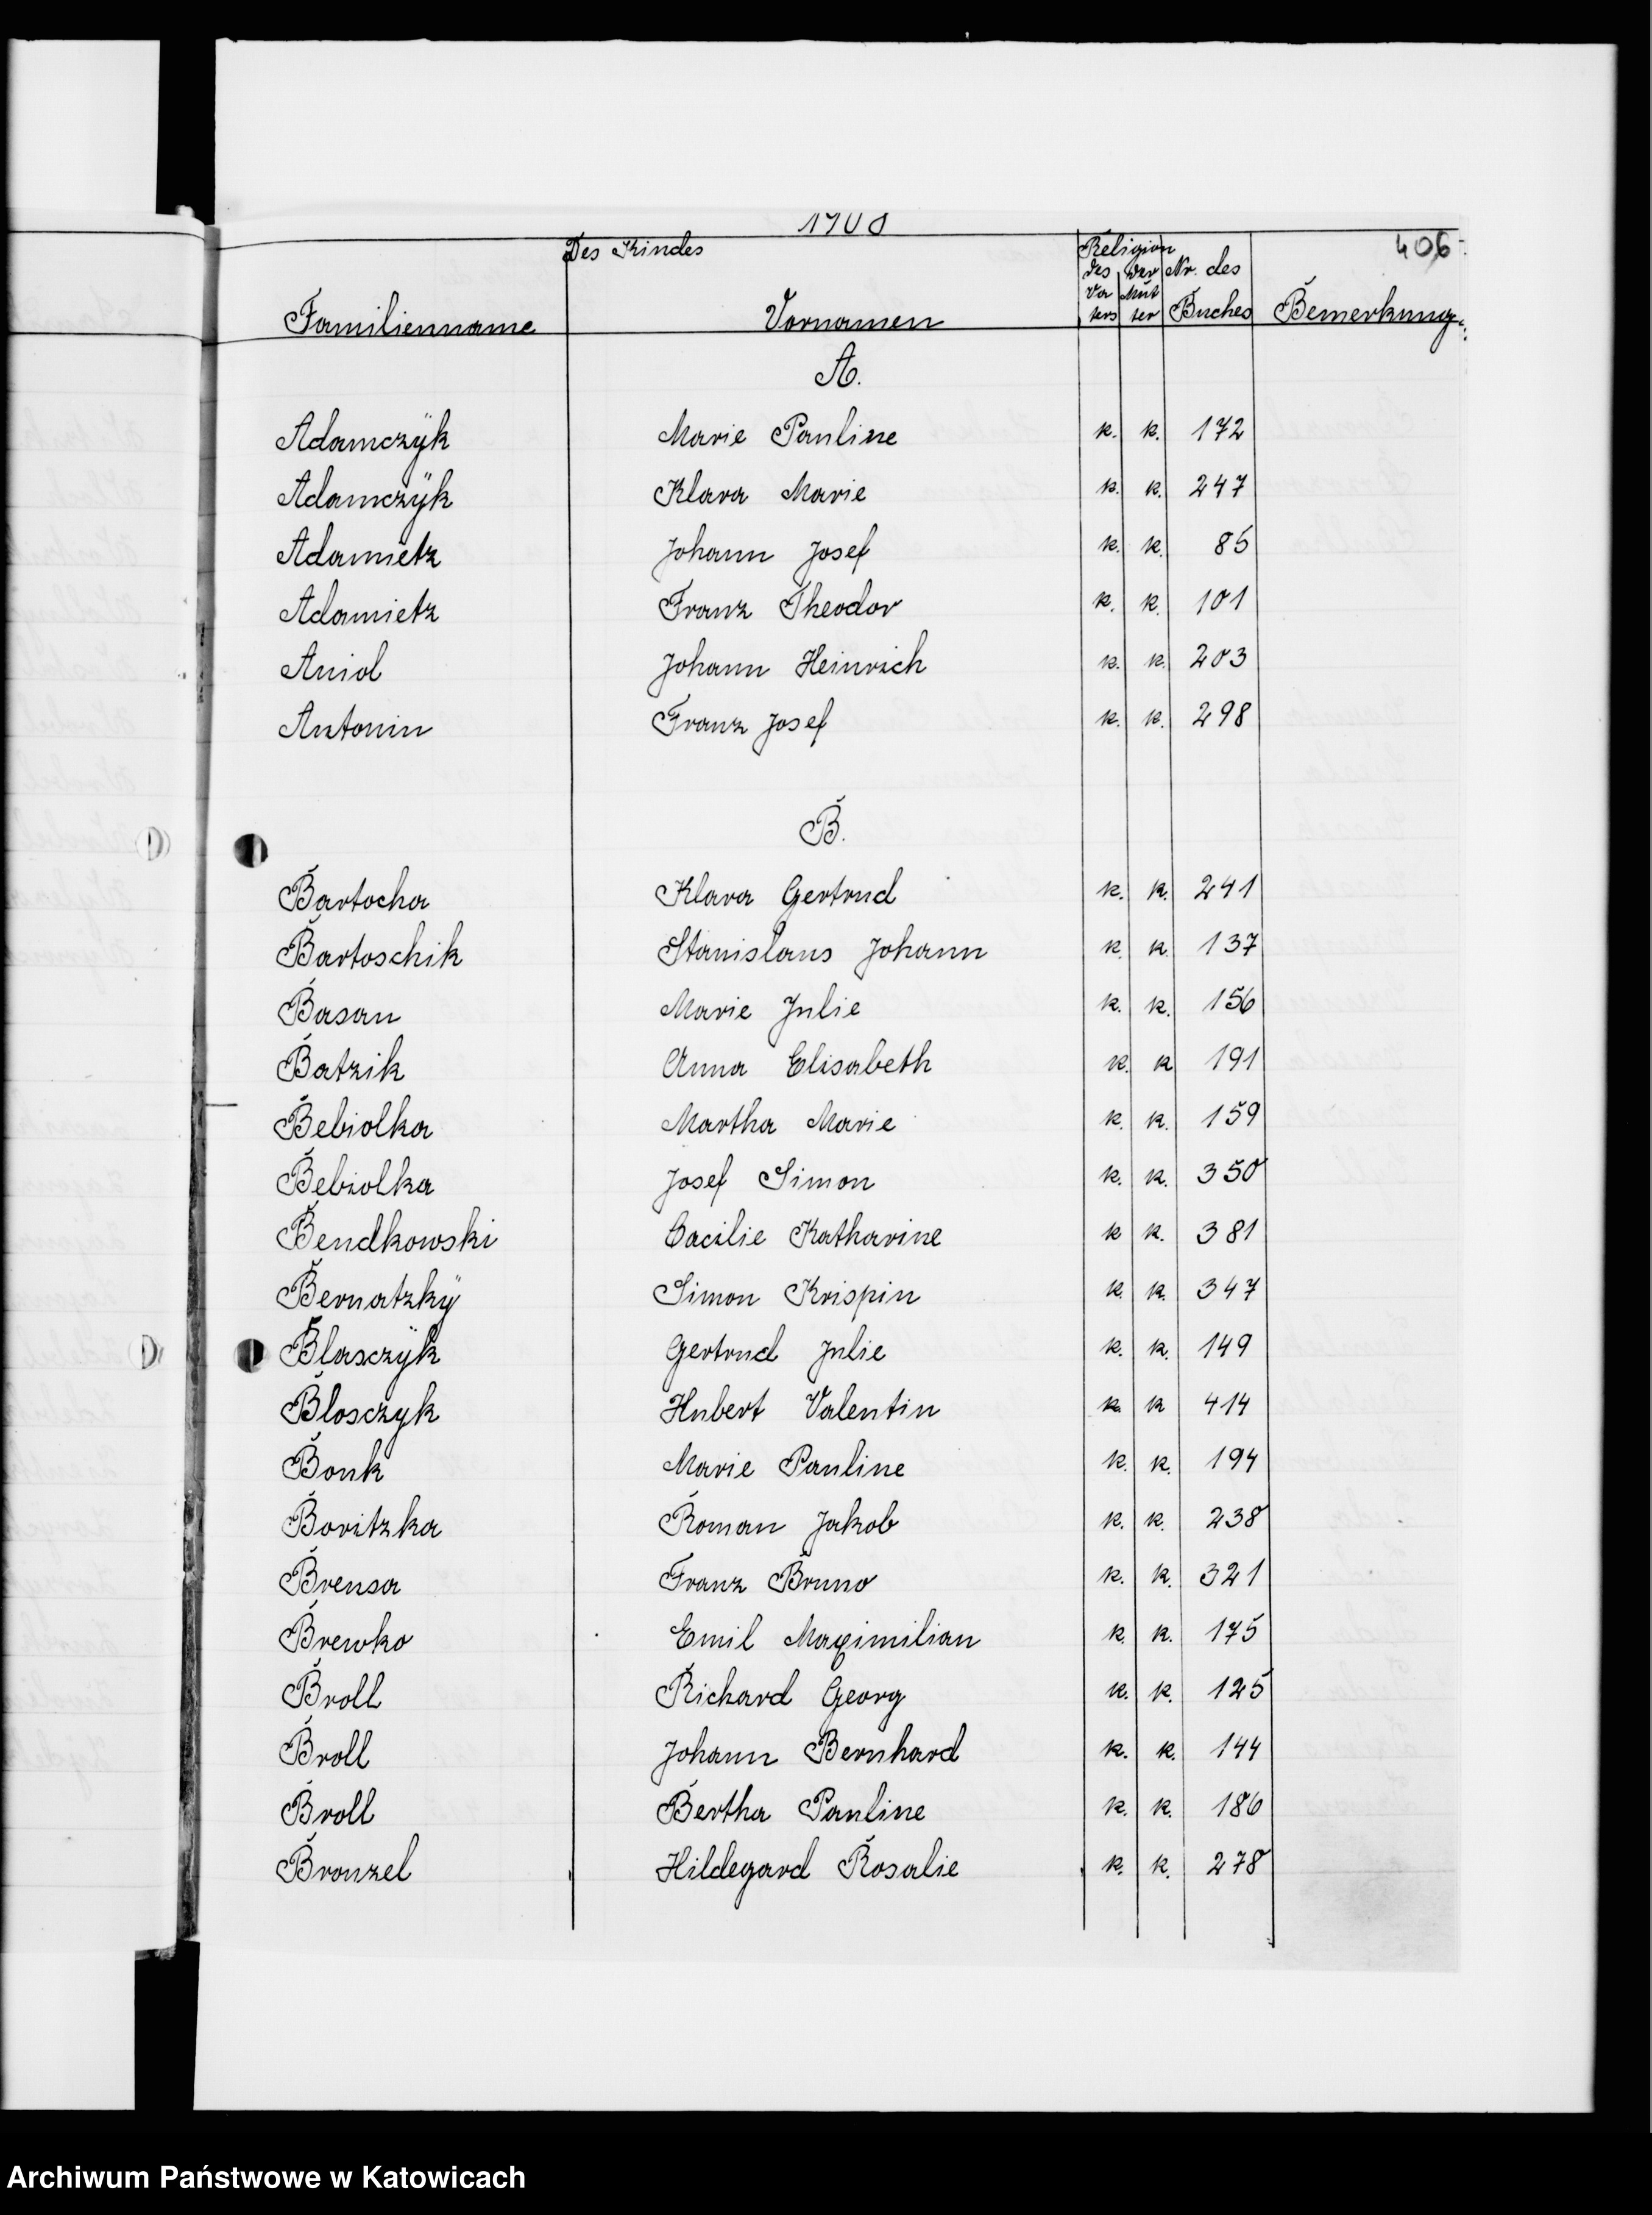 1908
406
Des Kindes
Religion
des Vaters
der Mutter
Nr. des Buches
Familienname Vornamen Bemerkung.
A.
Adamczÿk Marie Pauline k. k. 172
Adamczÿk Klara Marie k. k. 247
Adamietz Johann Josef k. k. 85
Adamietz Franz Theodor k. k. 101
Aniol Johann Heinrich k. k. 203
Antonin Franz Josef k. k. 298
B.
Bartocha Klara Gertrud k. k. 241
Bartoschik Stanislaus Johann k. k. 137
Basan Marie Julie k. k. 156
Batzik Anna Elisabeth k. k 191
Bebiolka Martha Marie k. k. 159
Bebiolka Josef Simon k. k. 350
Bendkowski Cacilie Katharine k k. 381
Bernatzkÿ Simon Krispin k. k. 347
Blasczÿk Gertrud Julie k. k. 149
Blosczyk Hubert Valentin k. k 414
Bonk Marie Pauline k. k. 194
Boritzka Roman Jakob k. k. 238
Brensa Franz Bruno k. k. 321
Brewko Emil Maximilian k. k. 175
Broll Richard Georg k. k. 125
Broll Johann Bernhard k. k. 144
Broll Bertha Pauline k. k. 186
Bronzel Hildegard Rosalie k. k. 278
Archiwum Państwowe w Katowicach